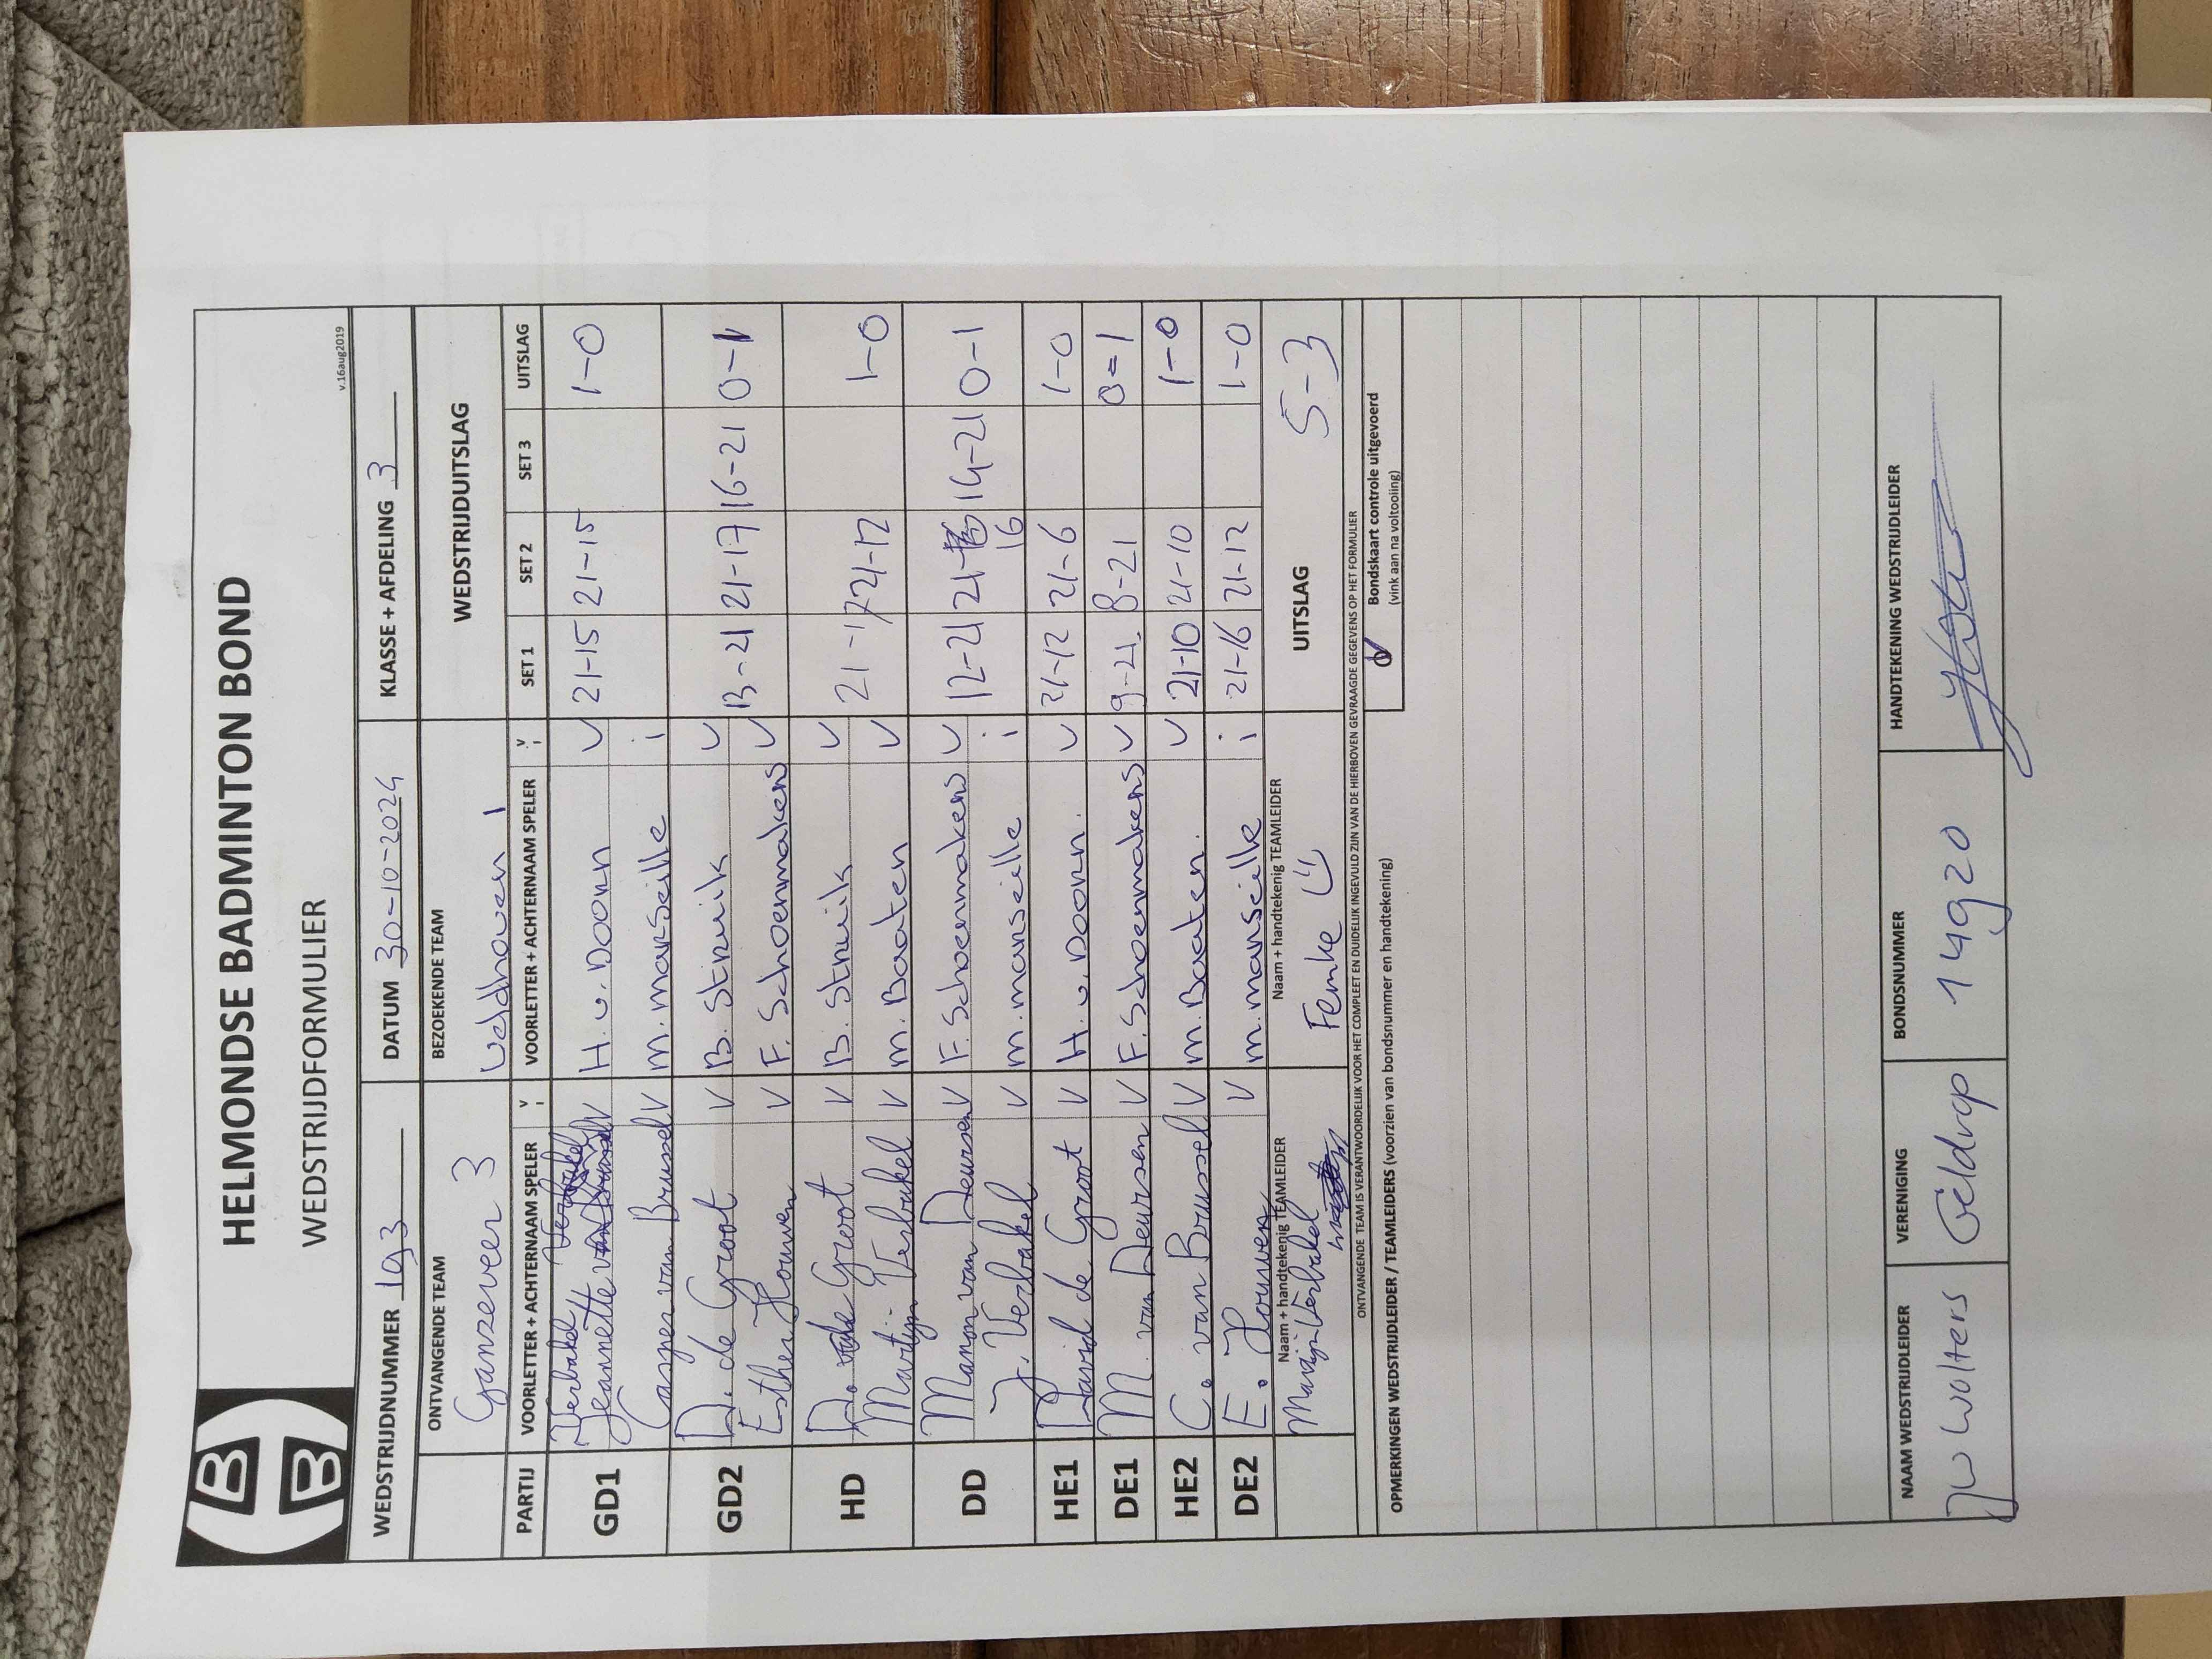 HELMONDSE BADMINTON BOND
WEDSTRIJDFORMULIER
v.16aug2019
WEDSTRIJDNUMMER 193 DATUM 30-10-2024 KLASSE + AFDELING 3
ONTVANGENDE TEAM BEZOEKENDE TEAM WEDSTRIJDUITSLAG
Ganzeveer 3 Veldhoven 1
PARTIJ VOORLETTER + ACHTERNAAM SPELER v i VOORLETTER + ACHTERNAAM SPELER v i SET 1 SET 2 SET 3 UITSLAG
GD1 Jeannette Verbakel V H. v. Doorn V 21-15 21-15 1-0
Casper van Brussel V M. Marseille i
GD2 D. de Groot V B. Struik V 13-21 21-17 16-21 0-1
Esther Houwen V F. Schoenmakers V
HD D. de Groot V B. Struik V 21-17 21-12 1-0
Martijn Verbakel V M. Baaten V
DD Manon van Deursen V F. Schoenmakers V 12-21 21-16 14-21 0-1
J. Verbakel V M. Marseille i
HE1 David de Groot V H. v. Doorn. V 21-12 21-6 1-0
DE1 M. van Deursen V F. Schoenmakers V 9-21 8-21 0=1
HE2 C. van Brussel V M. Baaten. V 21-10 21-10 1-0
DE2 E. Houwen V M. Marseille i 21-16 21-12 1-0
Naam + handtekenig TEAMLEIDER Naam + handtekenig TEAMLEIDER UITSLAG 5-3
Martijn Verbakel Femke
ONTVANGENDE TEAM IS VERANTWOORDELIJK VOOR HET COMPLEET EN DUIDELIJK INGEVULD ZIJN VAN DE HIERBOVEN GEVRAAGDE GEGEVENS OP HET FORMULIER
OPMERKINGEN WEDSTRIJDLEIDER / TEAMLEIDERS (voorzien van bondsnummer en handtekening)
Bondskaart controle uitgevoerd
(vink aan na voltooling)
NAAM WEDSTRIJDLEIDER VERENIGING BONDSNUMMER HANDTEKENING WEDSTRIJDLEIDER
JW Wolters Geldrop 14920